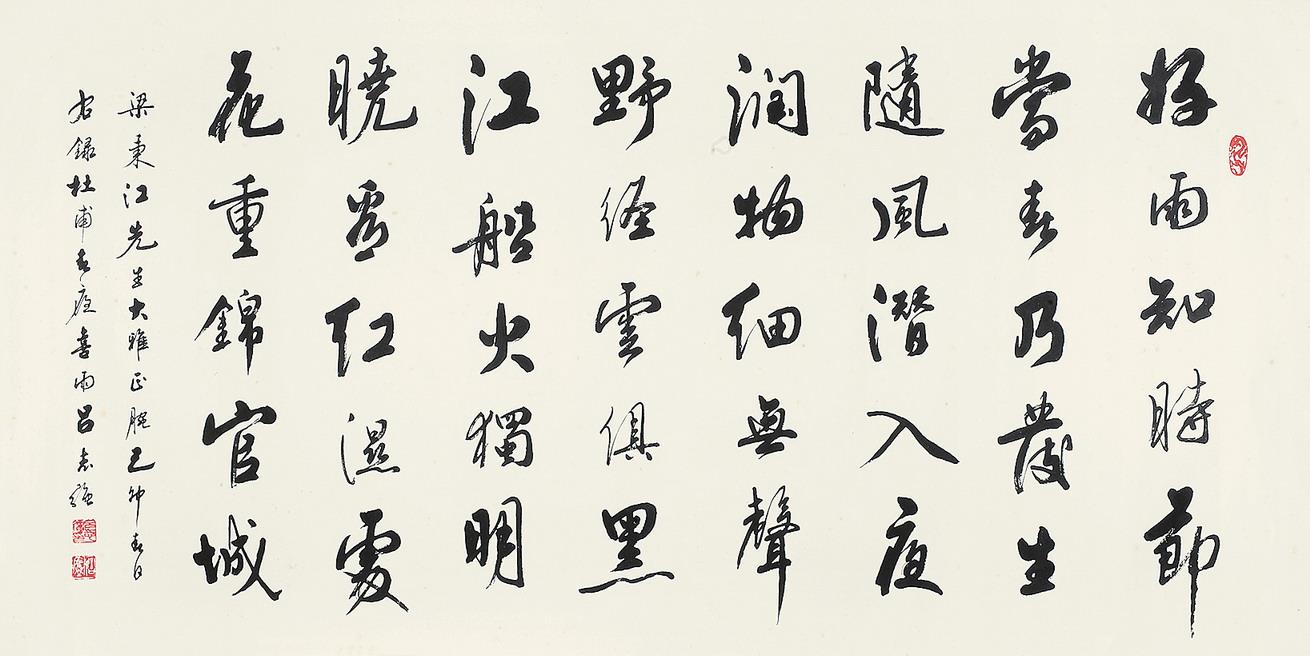 好雨知時節
當春乃發生
隨風潛入夜
潤物細無聲
野徑雲俱黑
江船火獨明
曉看紅濕處
花重錦官城
梁東江先生大雅正腕己卯春日
右錄杜甫春夜喜雨呂志強